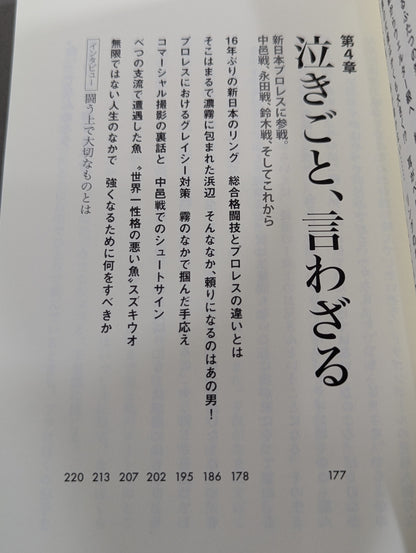 第4章
泣きごと、言わざる
新日本プロレスに参戦。
中邑戦、永田戦、鈴木戦、そしてこれから
177
16年ぶりの新日本のリング 総合格闘技とプロレスの違いとは
178
そこはまるで濃霧に包まれた浜辺 そんななか、頼りになるのはあの男!
186
プロレスにおけるグレイシー対策 霧のなかで掴んだ手応え
195
コマーシャル撮影の裏話と 中邑戦でのシュートサイン
202
べつの支流で遭遇した魚 “世界一性格の悪い魚”スズキウオ
207
無限ではない人生のなかで 強くなるために何をすべきか
213
インタビュー 闘う上で大切なものとは
220